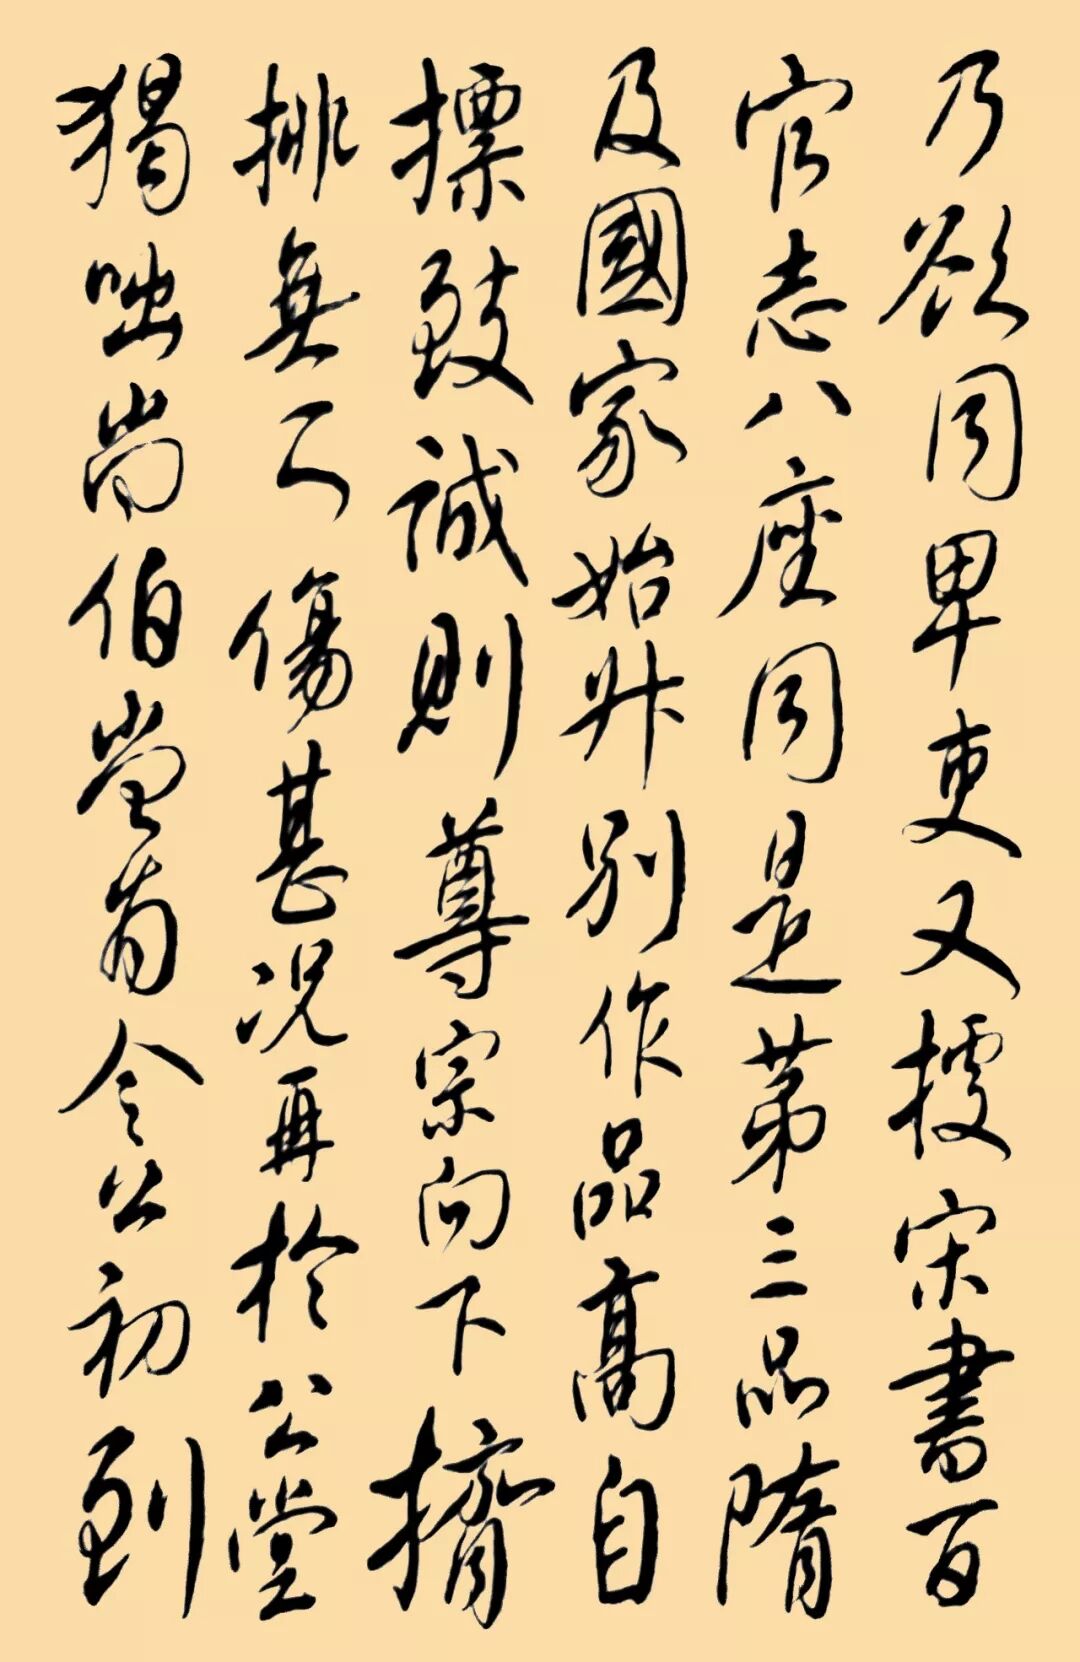 乃欲同卑吏又據宋書百
官志八座同是第三品隋
及國家始升別作品高自
摽致誠則尊宗向下擠
排無乃傷甚況再於公堂
猲咄常伯當為令公初到